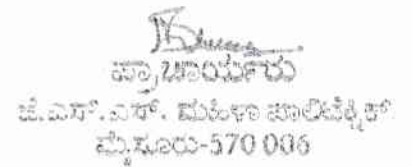 ಪ್ರಾಚಾರ್ಯರು
ಜೆ.ಎಸ್.ಎಸ್. ಮಹಿಳಾ ಪಾಲಿಟೆಕ್ನಿಕ್
ಮೈಸೂರು-570 006